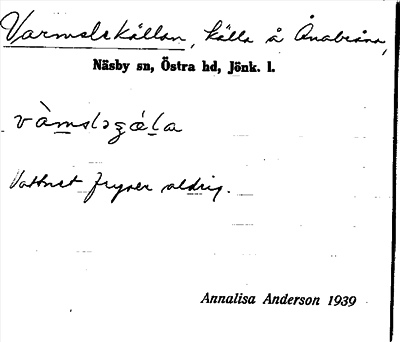 Varmslekällan, källa å Ånabråna,
Näsby sn, Östra hd, Jönk. l.
Vattnet fryser aldrig.
Annalisa Anderson 1939